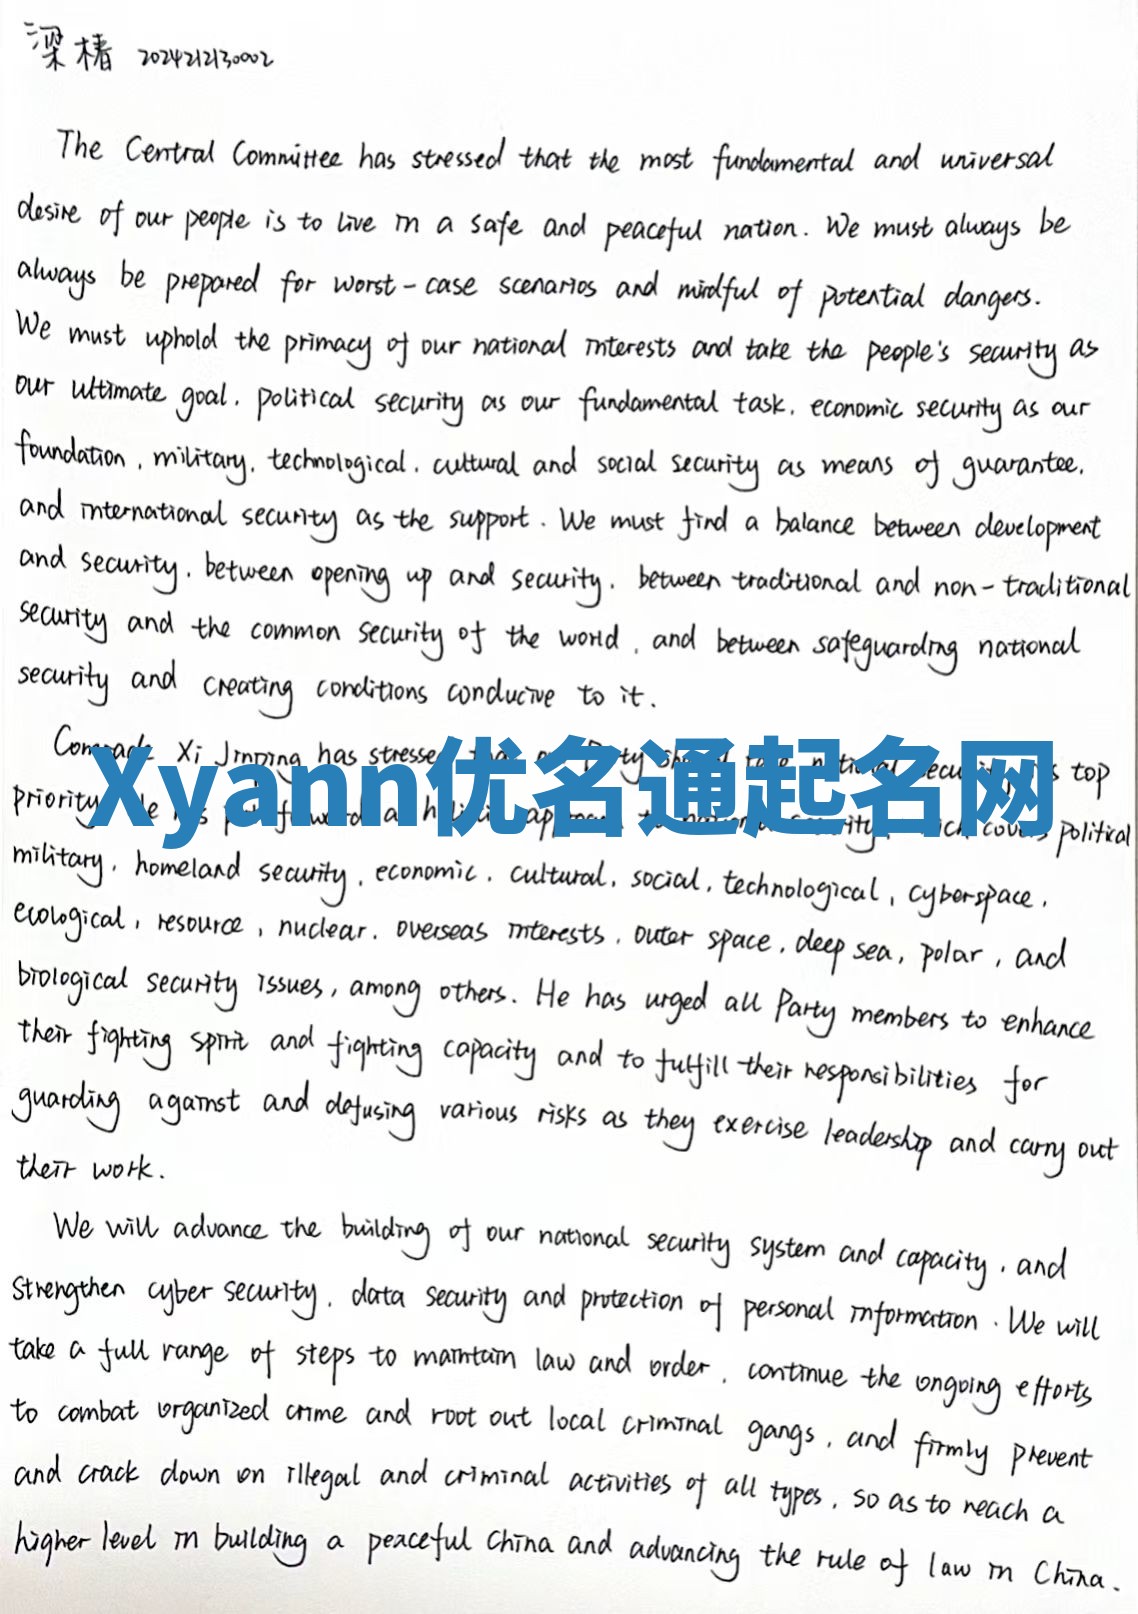 梁椿 2024212130002
The Central Committee has stressed that the most fundamental and universal
desire of our people is to live in a safe and peaceful nation. We must always be
always be prepared for worst-case scenarios and mindful of potential dangers.
We must uphold the primacy of our national interests and take the people's security as
our ultimate goal, political security as our fundamental task, economic security as our
foundation, military, technological, cultural and social security as means of guarantee,
and international security as the support. We must find a balance between development
and security, between opening up and security, between traditional and non-traditional
security and the common security of the world, and between safeguarding national
security and creating conditions conducive to it.
Comrade Xi Jinping has stressed top
Xyann优名通起名网
priority political
military, homeland security, economic, cultural, social, technological, cyberspace,
ecological, resource, nuclear, overseas interests, outer space, deep sea, polar, and
biological security issues, among others. He has urged all Party members to enhance
their fighting spirit and fighting capacity and to fulfill their responsibilities for
guarding against and defusing various risks as they exercise leadership and carry out
their work.
We will advance the building of our national security system and capacity, and
strengthen cyber security, data security and protection of personal information. We will
take a full range of steps to maintain law and order, continue the ongoing efforts
to combat organized crime and root out local criminal gangs, and firmly prevent
and crack down on illegal and criminal activities of all types, so as to reach a
higher level in building a peaceful China and advancing the rule of law in China.